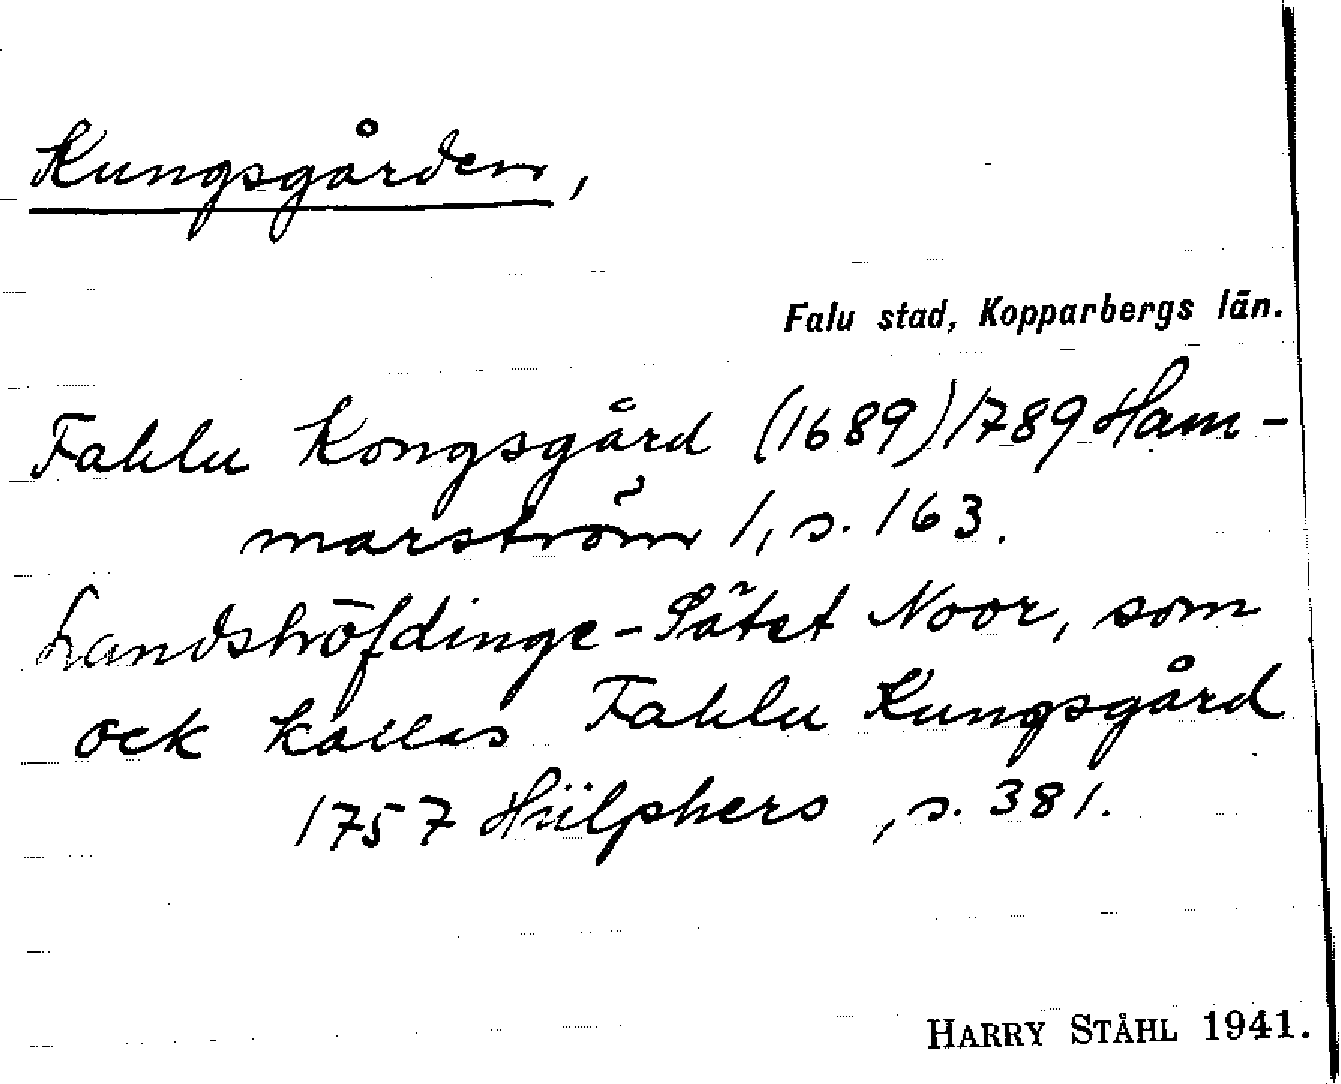 Kungsgården,
Falu stad, Kopparbergs län.
Fahlu Kongsgård (1689) 1789 Ham-
marström 1, s. 163.
Landshöfdinge-Sätet Noor, som
ock kallas Fahlu Kungsgård
1757 Hülphers, s. 381.
HARRY STÅHL 1941.